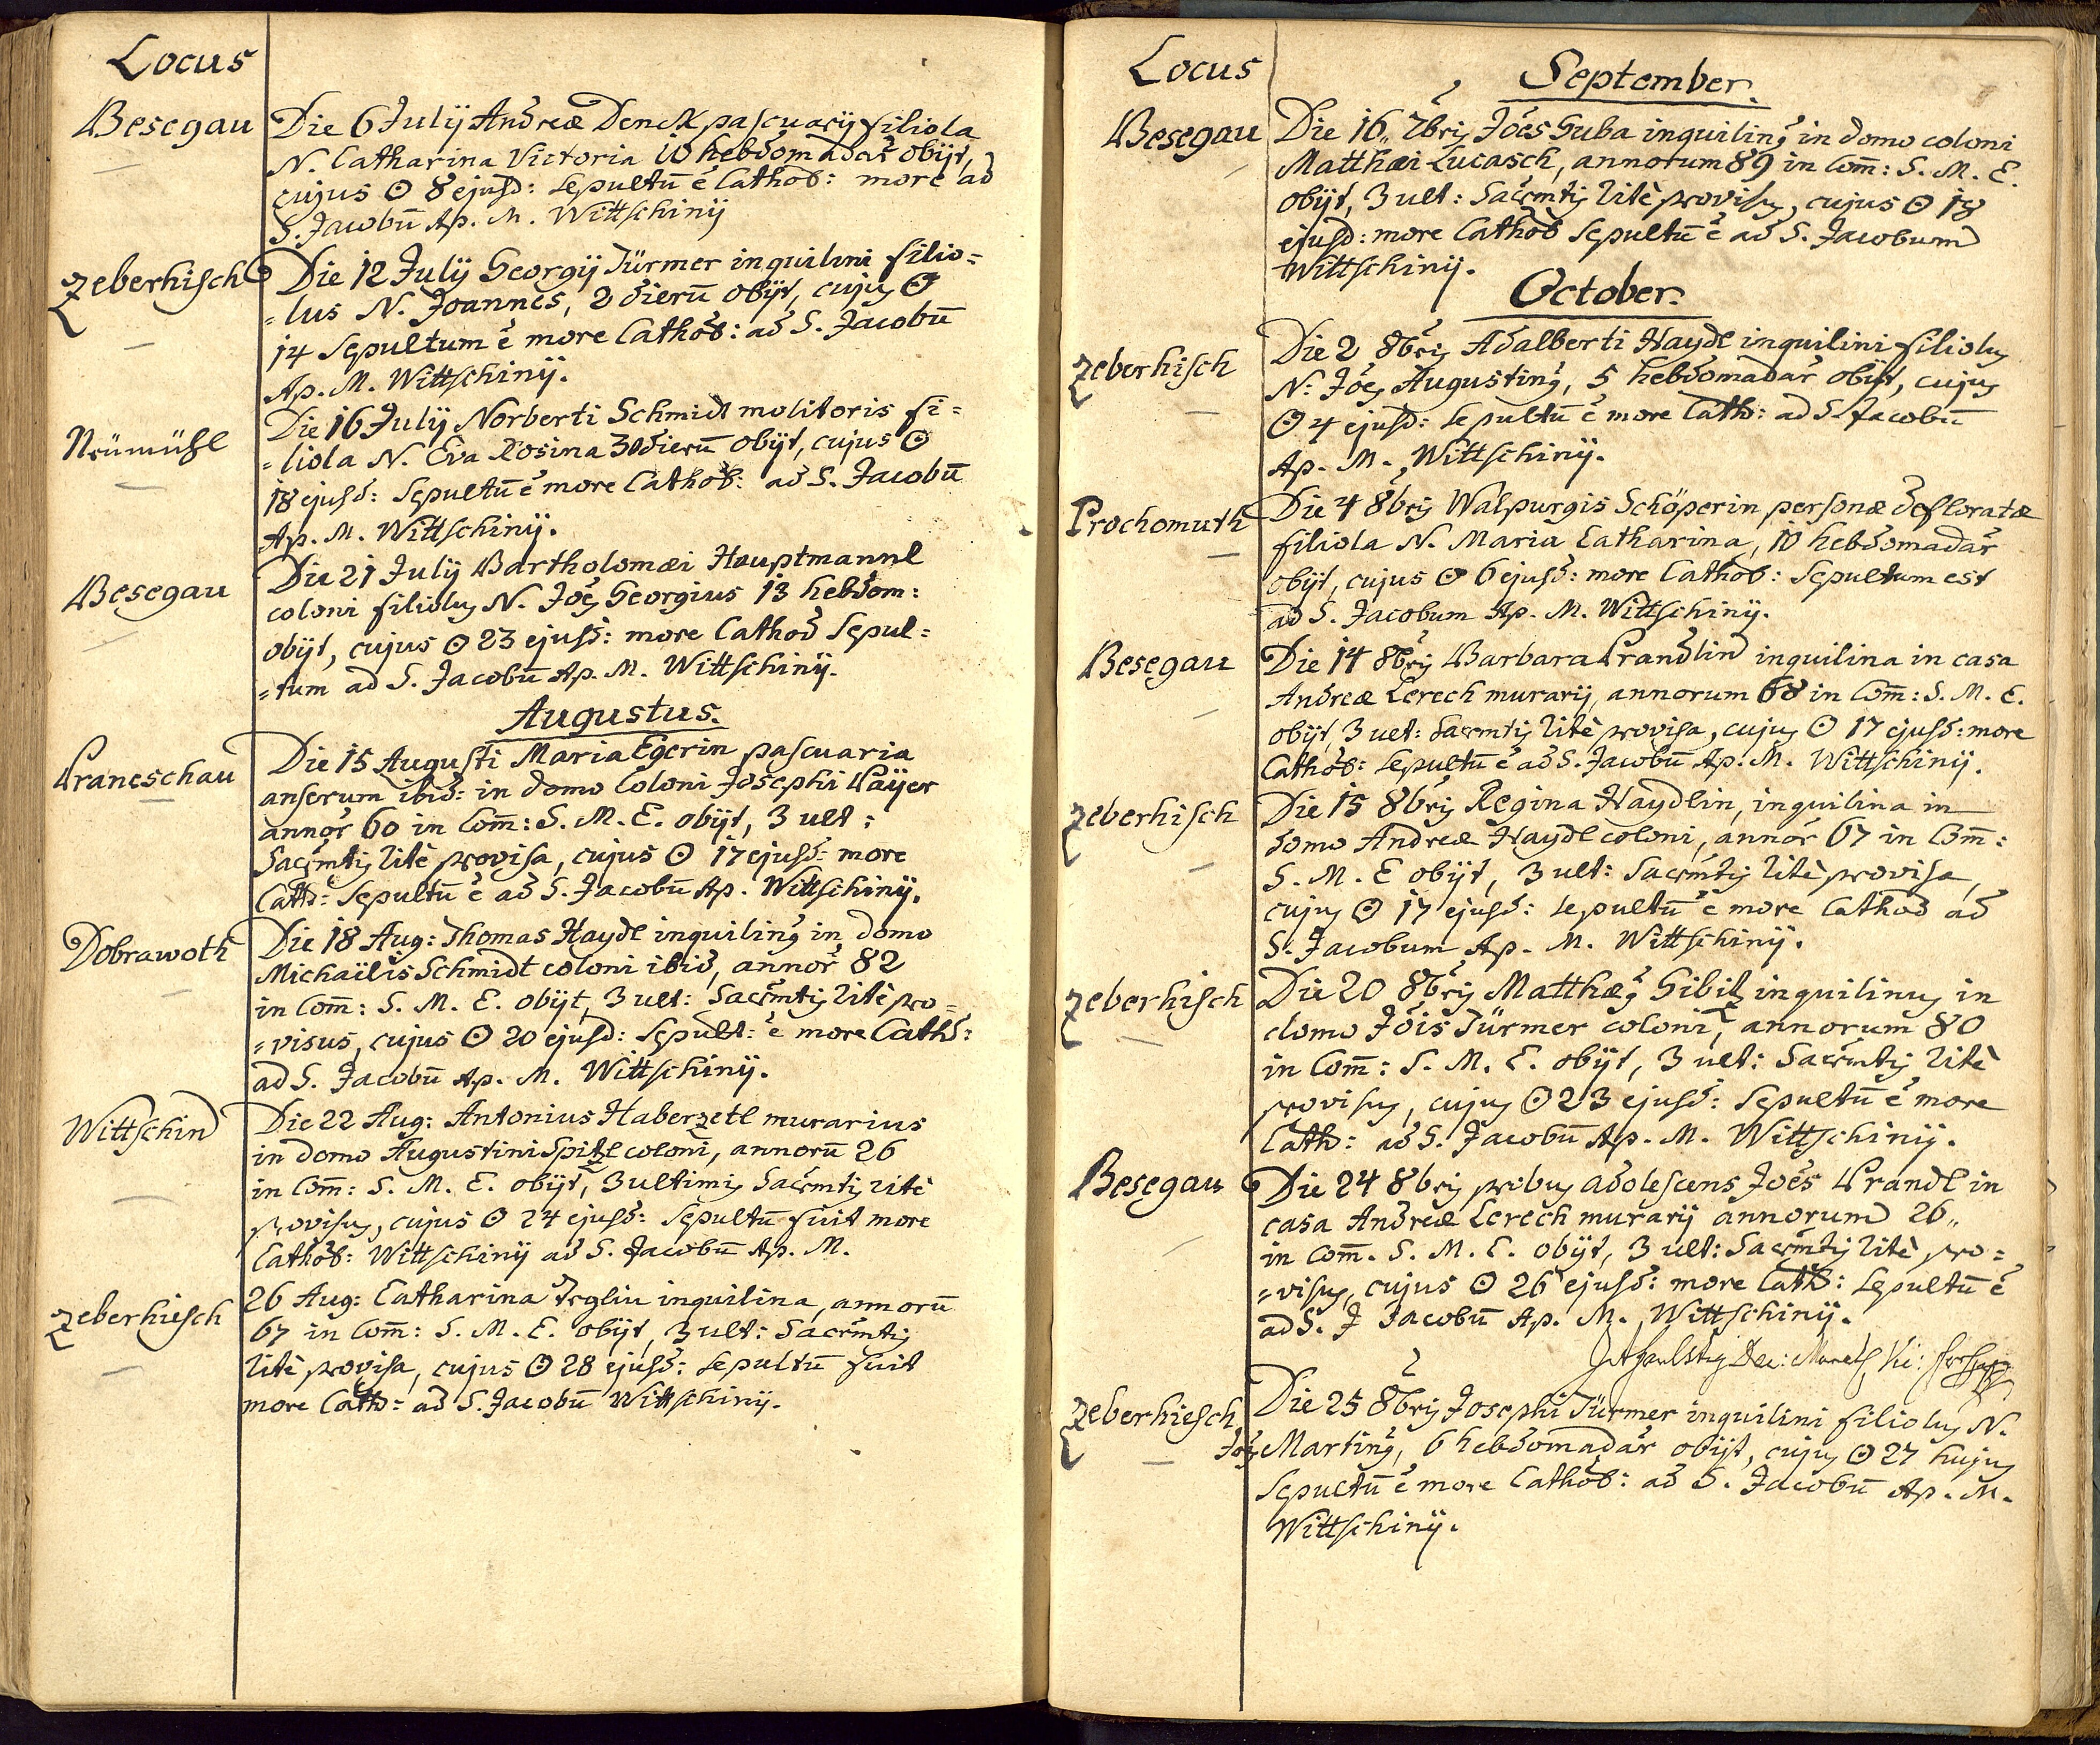 Locus
Besegau
Die 6 July Andreæ Denck pascuarÿ filiola
N. Catharina Victoria 10 hebdomadar̃ obÿt,
cujus ⊙ 8 ejusd: Sepultū ẽ Cathod: more ad
S. Jacobū Ap. M. Wittschinÿ
Zeberhisch
Die 12 July Georgÿ Türmer inquilini filio=
=lus N. Joannes, 2 dierū obÿt, cujus ⊙
14 Sepultum ẽ more Cathod: ad S. Jacobū
Ap. M. Wittschinÿ.
Neümühl
Die 16 July Norberti Schmidt molitoris fi=
=liola N. Eva Rosina 30 dierū obÿt, cujus ⊙
18 ejusd: Sepultū ẽ more Cathod: ad S. Jacobū
Ap. M. Wittschinÿ.
Besegau
Die 21 July Bartholomæi Hauptmannl
coloni filiolus N. Joēs Georgius 13 hebdom:
obÿt, cujus ⊙ 23 ejusd: more Cathod Sepul=
=tum ad S. Jacobū Ap. M. Wittschinÿ.
Augustus.
Praneschau
Die 15 Augusti Maria Egerin pascuaria
anserum ibid: in domo Coloni Josephi Paÿer
annor̃ 60 in Com̄: S. M. E. obÿt, 3 ult:
Sacr̃mtis ritè provisa, cujus ⊙ 17 ejusd: more
Cath: Sepultū ẽ ad S. Jacobū Ap. Wittschinÿ.
Dobrawoth
Die 18 Aug: Thomas Haydl inquilinus in domo
Michaëlis Schmidt coloni ibid, annor̃ 82
in Com̄: S. M. E. obÿt, 3 ult: Sacr̃mtis ritè pro=
=visus, cujus ⊙ 20 ejusd: Sepult: ẽ more Cathd:
ad S. Jacobū Ap. M. Wittschinÿ.
Wittschin
Die 22 Aug: Antonius Haberzetl murarius
in domo Augustini Spitzl coloni, annorū 26
in Com̄: S. M. E. obÿt, 3 ultimis Sacr̃mtis ritè
provisus, cujus ⊙ 24 ejusd: Sepultū fuit more
Cathod: Wittschinÿ ad S. Jacobū Ap. M.
Zeberhiesch
26 Aug: Catharina inquilina, annorū
67 in Com̄: S. M. E. obÿt, 3 ult: Sacr̃mtis
ritè provisa, cujus ⊙ 28 ejusd: Sepultū fuit
more Cath: ad S. Jacobū Wittschinÿ.
Locus
September.
Besegau
Die 16. 7bris Joēs Guba inquilinus in domo coloni
Matthæi Lucasch, annorum 89 in Com̄: S. M. E.
obÿt, 3 ult: Sacr̃mtis ritè provisus, cujus ⊙ 18
ejusd: more Cathod Sepultū ẽ ad S. Jacobum
Wittschinÿ.
October.
Zeberhisch
Die 2 8bris Adalberti Haydl inquilini filiolus
N. Joēs Augustinus, 5 hebdomadar̃ obÿt, cujus
⊙ 4 ejusd: Sepultū ẽ more Cath: ad S. Jacobū
Ap. M. Wittschinÿ.
Prochomuth
Die 4 8bris Walpurgis Schöperin personæ defloratæ
filiola N. Maria Catharina, 10 hebdomadar̃
obÿt, cujus ⊙ 6 ejusd: more Cathod: Sepultum est
ad S. Jacobum Ap. M. Wittschinÿ.
Besegau
Die 14 8bris Barbara Prandlin inquilina in casa
Andreæ Lerech murarÿ, annorum 68 in Com̄: S. M. E.
obÿt, 3 ult: Sacr̃mtis ritè provisa, cujus ⊙ 17 ejusd: more
Cathod: Sepultū ẽ ad S. Jacobū Ap. M. Wittschinÿ.
Zeberhisch
Die 15 8bris Regina Haydlin, inquilina in
domo Andreæ Haydl coloni, annor̃ 67 in Com̄:
S. M. E obÿt, 3 ult: Sacr̃mtis ritè provisa,
cujus ⊙ 17 ejusd: Sepultū ẽ more Cathod ad
S. Jacobum Ap. M. Wittschinÿ.
Zeberhisch
Die 20 8bris Matthæus Gibitz inquilinus in
domo Jōis Türmer coloni, annorum 80
in Com̄: S. M. E. obÿt, 3 ult: Sacr̃mtis ritè
provisus, cujus ⊙ 23 ejusd: Sepultū ẽ more
Cath: ad S. Jacobū Ap. M. Wittschinÿ.
Besegau
Die 24 8bris probus adolescens Joēs Prandl in
casa Andreæ Lerech murarÿ annorum 26
in Com̄. S. M. E. obÿt, 3 ult: Sacr̃mtis ritè pro=
=visus, cujus ⊙ 26 ejusd: more Cath: Sepultū ẽ
ad S. J Jacobū Ap. M. Wittschinÿ.
Zeberhiesch
Die 25 8bris Josephi Türmer inquilini filiolus N.
Joēs Martinus, 6 hebdomadar̃ obÿt, cujus ⊙ 27 hujus
Sepultū ẽ more Cathod: ad S. Jacobū Ap. M.
Wittschinÿ.